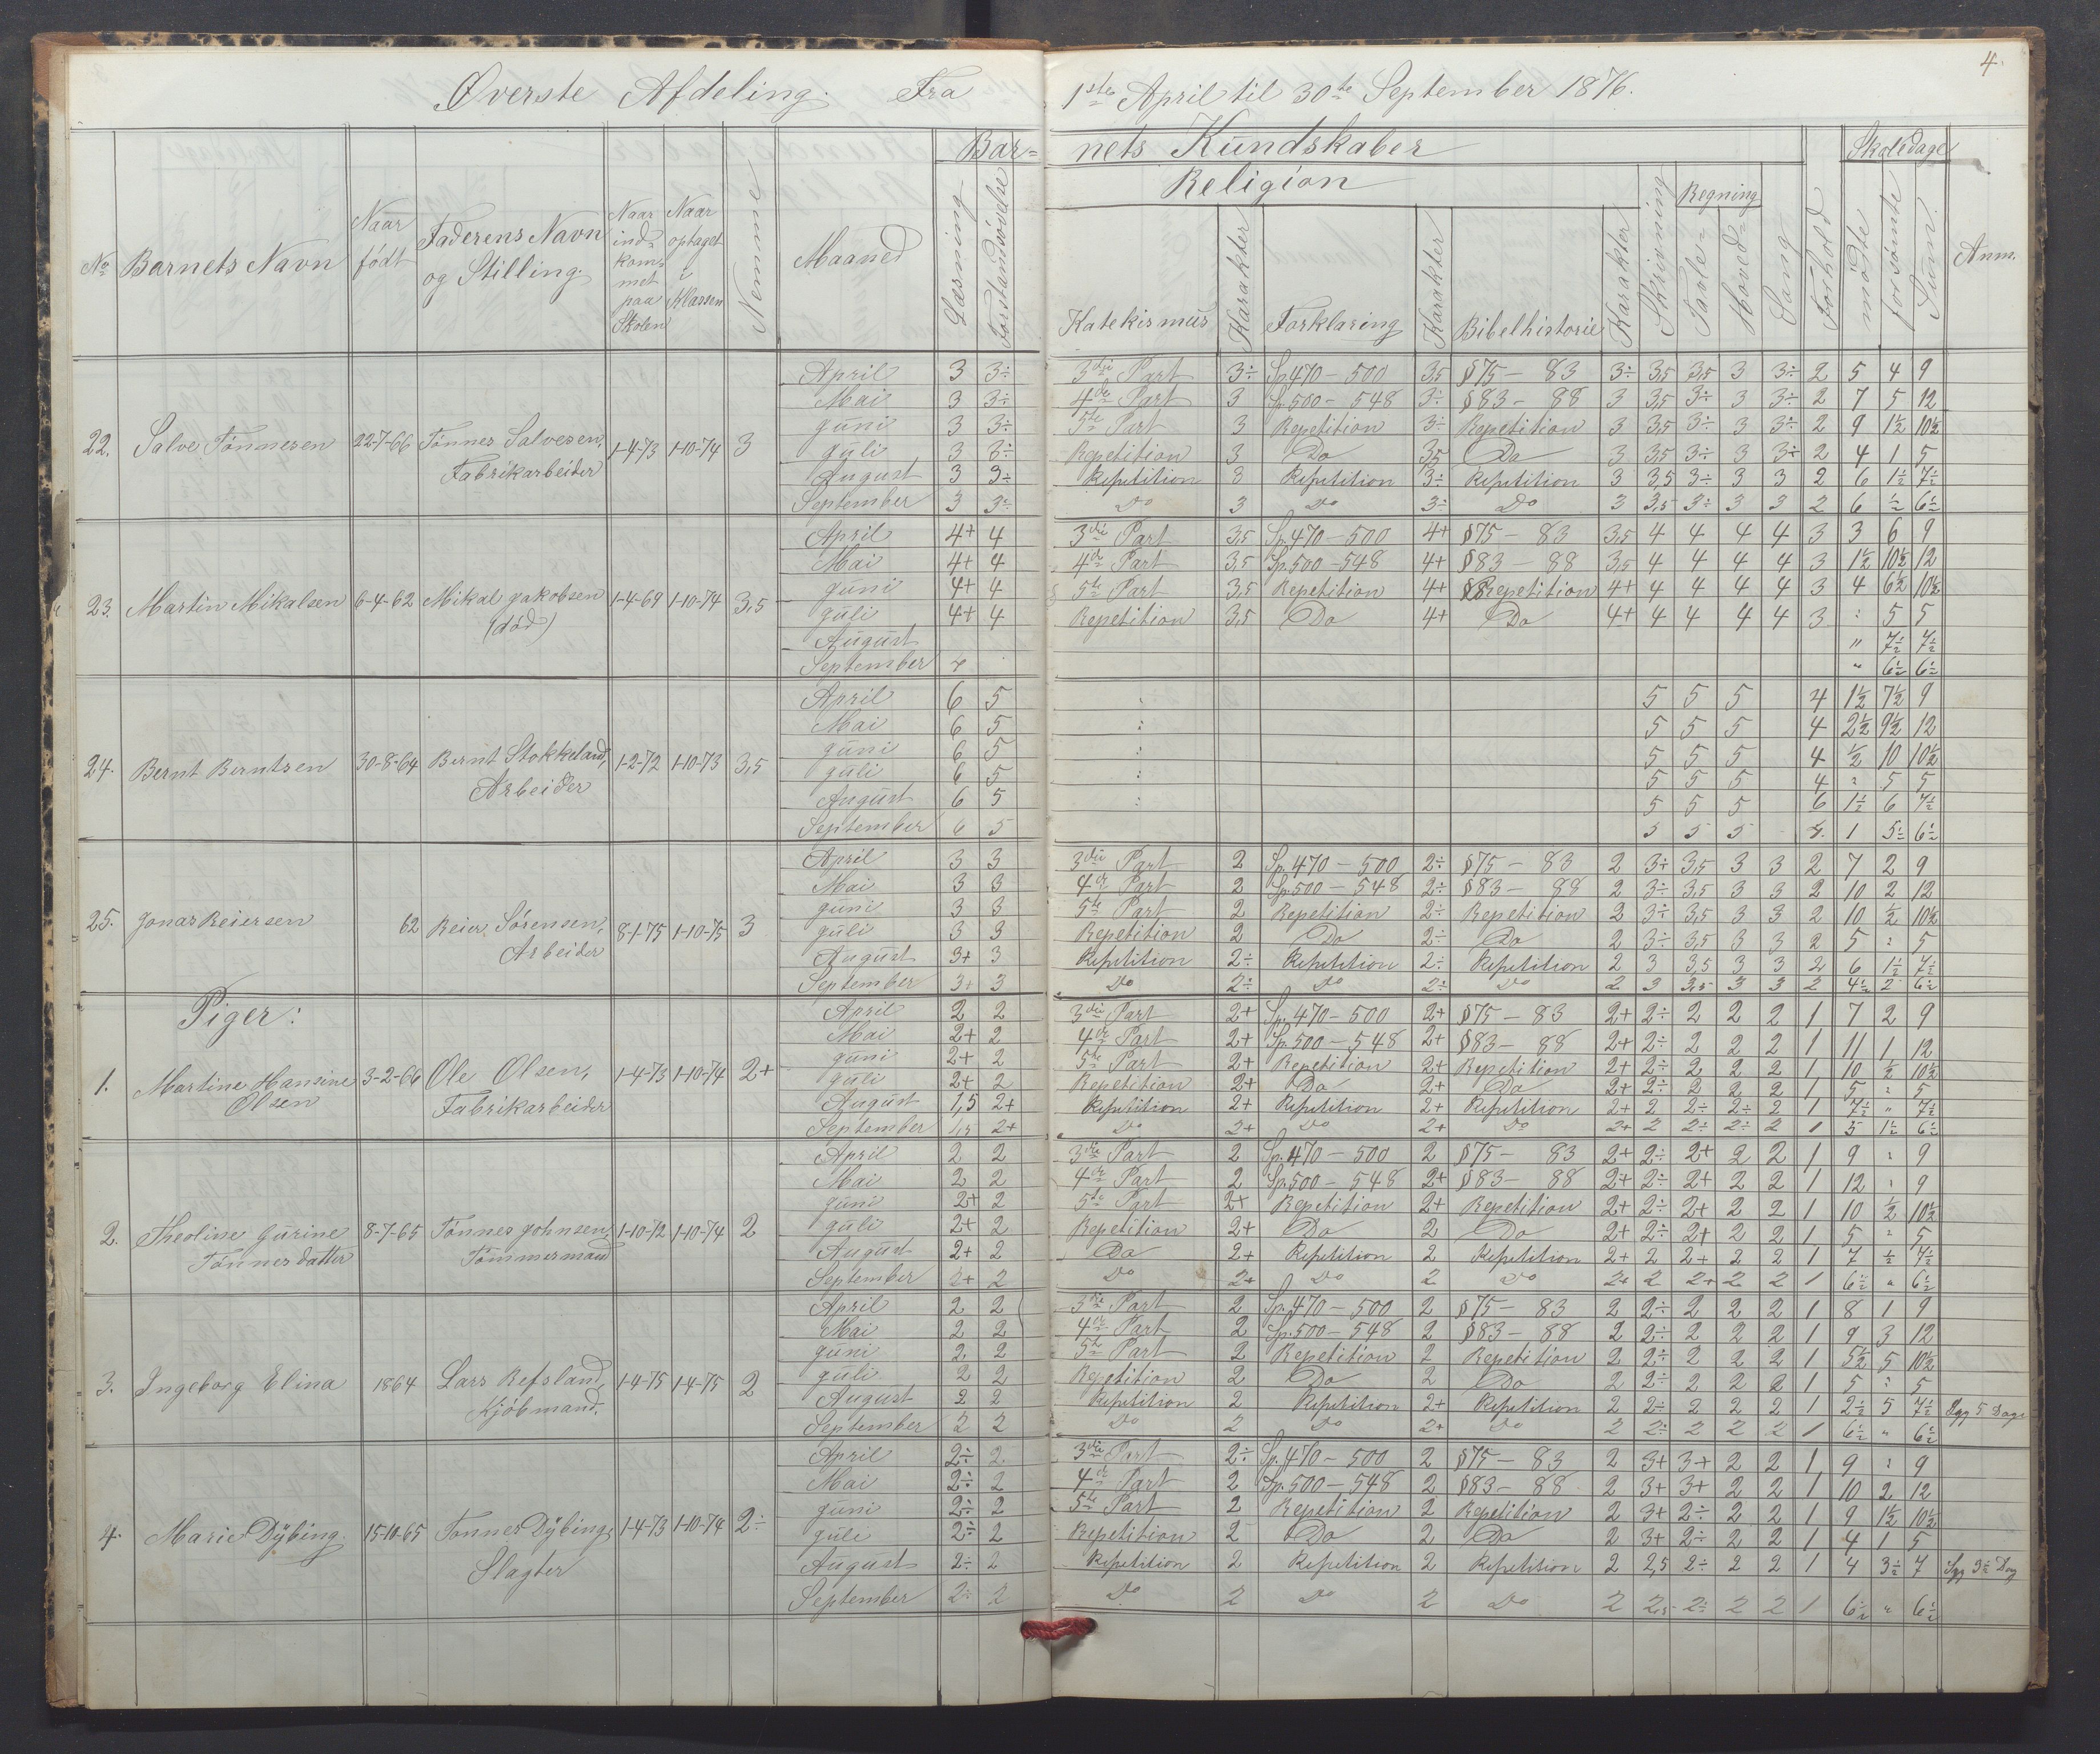 4.
Øverste Afdeling. Fra 1ste April til 30te September 1876.
Barnets Kundskaber
Skoledage
Religion
Regning
No Barnets Navn
Naar født
Faderens Navn og Stilling
Naar indkommet paa Skolen
Naar optaget i Klassen
Nemme
Maaned
Læsning
Forstandsøvelse
Katekismus
Karakter
Forklaring
Karakter
Bibelhistorie
Karakter
Skrivning
Tavle-
Hoved-
Sang
Forhold
mødte
forsømte
Sum.
Anm.
22. Salve Tønnesen 22-7-66 Tønnes Salvesen, Fabrikarbeider 1-4-73 1-10-74 3
April 3 3÷ 3die Part 3÷ Sp. 470-500 3,5 §75-83 3÷ 3,5 3,5 3 3÷ 2 5 4 9
Mai 3 3÷ 4de Part 3 Sp. 500-548 3÷ §83-88 3 3,5 3÷ 3 3÷ 2 7 5 12
Juni 3 3÷ 5te Part 3 Repetition 3÷ Repetition 3 3,5 3÷ 3 3÷ 2 9 1½ 10½
Juli 3 3÷ Repetition 3 Do 3,5 Do 3 3,5 3÷ 3 3÷ 2 4 1 5
August 3 3÷ Repetition 3 Repetition 3÷ Repetition 3 3,5 3÷ 3 3 2 6 1½ 7½
September 3 3÷ Do 3 Do 3÷ Do 3 3,5 3÷ 3 3 2 6 ½ 6½
23. Martin Mikalsen 6-4-62 Mikal Jakobsen (død) 1-4-69 1-10-74 3,5
April 4+ 4 3die Part 3,5 Sp. 470-500 4+ §75-83 3,5 4 4 4 4 3 3 6 9
Mai 4+ 4 4de Part 3,5 Sp. 500-548 4+ §83-88 3,5 4 4 4 4 3 1½ 10½ 12
Juni 4+ 4 5te Part 3,5 Repetition 4+ Repetition 4+ 4 4 4 4 3 4 6½ 10½
Juli 4+ 4 Repetition 3,5 Do 4+ Do 4+ 4 4 4 4 3 : 5 5
August " 7½ 7½
September " 6½ 6½
24. Bernt Berntsen 30-8-64 Bernt Stokkeland, Arbeider 1-2-72 1-10-73 3,5
April 6 5 : 5 5 5 4 1½ 7½ 9
Mai 6 5 : 5 5 5 4 2½ 9½ 12
Juni 6 5 : 5 5 5 4 ½ 10 10½
Juli 6 5 : 5 5 5 4 : 5 5
August 6 5 : 5 5 5 6 1½ 6 7½
September 6 5 5 5 5 1 5½ 6½
25. Jonas Reiersen 62 Reier Sørensen, Arbeider 8-1-75 1-10-75 3
April 3 3 3die Part 2 Sp. 470-500 2÷ §75-83 2 3÷ 3,5 3 3 2 7 2 9
Mai 3 3 4de Part 2 Sp. 500-548 2÷ §83-88 2 3÷ 3,5 3 3 2 10 2 12
Juni 3 3 5te Part 2 Repetition 2÷ Repetition 2 3÷ 3,5 3 3 2 10 ½ 10½
Juli 3 3 Repetition 2 Do 2÷ Do 2 3÷ 3,5 3 3 2 5 : 5
August 3+ 3 Repetition 2÷ Repetition 2÷ Repetition 2 3 3,5 3 3 2 6 1½ 7½
September 3+ 3 Do 2÷ Do 2÷ Do 2 3 3,5 3 3 2 4½ 2 6½
Piger:
1. Martine Hansine Olsen 3-2-66 Ole Olsen, Fabrikarbeider 1-4-73 1-10-74 2+
April 2 2 3die Part 2+ Sp. 470-500 2+ §75-83 2+ 2÷ 2 2 2 1 7 2 9
Mai 2+ 2 4de Part 2+ Sp. 500-548 2+ §83-88 2+ 2÷ 2 2 2 1 11 1 12
Juni 2+ 2 5te Part 2+ Repetition 2+ Repetition 2+ 2÷ 2 2 2 1 10 ½ 10½
Juli 2+ 2 Repetition 2+ Do 2+ Do 2+ 2÷ 2 2 2 1 5 : 5
August 1,5 2+ Repetition 2+ Repetition 2+ Repetition 2+ 2 2÷ 2÷ 2 1 7½ " 7½
September 1,5 2+ Do 2+ Do 2+ Do 2+ 2 2÷ 2÷ 2 1 5 1½ 6½
2. Theoline Gurine Tønnesdatter 8-7-65 Tønnes Johnsen, Tømmermand 1-10-72 1-10-74 2
April 2 2 3die Part 2 Sp. 470-500 2 §75-83 2+ 2÷ 2+ 2 2 1 9 : 9
Mai 2 2 4de Part 2 Sp. 500-548 2+ §83-88 2+ 2÷ 2+ 2 2 1 12 : 9
Juni 2+ 2 5te Part 2+ Repetition 2+ Repetition 2+ 2÷ 2+ 2 2 1 10 ½ 10½
Juli 2+ 2 Repetition 2+ Do 2 Do 2+ 2÷ 2+ 2 2 1 5 : 5
August 2+ 2 Do 2+ Repetition 2 Repetition 2+ 2 2+ 2 2 1 7 ½ 7½
September 2+ 2 Do 2+ Do 2 Do 2+ 2 2+ 2 2 1 6½ " 6½
3. Ingeborg Elina 1864 Lars Refsland, Kjøbmand. 1-4-75 1-4-75 2
April 2 2 3die Part 2 Sp. 470-500 2 §75-83 2 2÷ 2 2 2 1 8 1 9
Mai 2 2 4de Part 2 Sp. 500-548 2 §83-88 2 2÷ 2 2 2 1 9 3 12
Juni 2 2 5te Part 2 Repetition 2 Repetition 2 2÷ 2 2 2 1 5½ 5 10½
Juli 2 2 Repetition 2 Do 2 Do 2 2÷ 2 2 2 1 5 : 5
August 2 2 Repetition 2 Repetition 2+ Repetition 2 2÷ 2 2 2 1 2½ 5 7½ Syg 5 Dage
September 2 2 Do 2 Do 2+ Do 2 2÷ 2 2 2 1 6½ " 6½
4. Marie Dÿbing. 15-10-65 Tønnes Dÿbing, Slagter 1-4-73 1-10-74 2÷
April 2÷ 2 3die Part 2÷ Sp. 470-500 2 §75-83 2 3+ 3+ 2 2 1 9 : 9
Mai 2÷ 2 4de Part 2 Sp. 500-548 2 §83-88 2 3+ 3+ 2 2 1 10 2 12
Juni 2÷ 2 5te Part 2 Repetition 2 Repetition 2 3+ 2÷ 2 2 1 9 1½ 10½
Juli 2÷ 2 Repetition 2 Do 2 Do 2 3+ 2÷ 2 2 1 4 1 5
August 2÷ 2 Repetition 2 Repetition 2 Repetition 2 2,5 2÷ 2 2 1 4 3½ 7 Syg 3½ Dag
September 2÷ 2 Do 2 Do 2 Do 2 2,5 2÷ 2 2 1 6½ " 6½